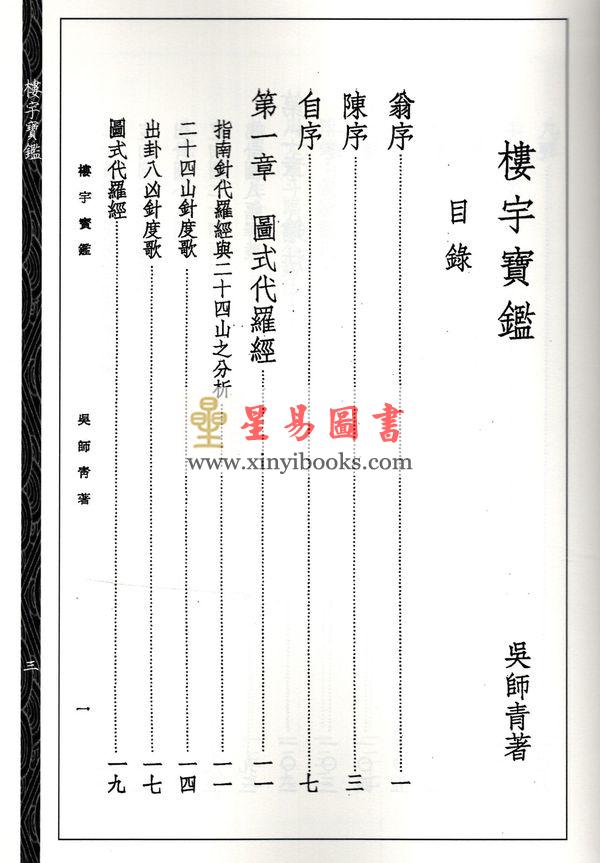 樓宇寶鑑
吳師青著
目錄
翁序……一
陳序……三
自序……七
第一章 圖式代羅經……一一
指南針代羅經與二十四山之分析……一一
二十四山針度歌……一四
出卦八凶針度歌……一七
圖式代羅經……一九
樓宇寶鑑
吳師青著
一
樓宇寶鑑
三
星易圖書
www.xinyibooks.com